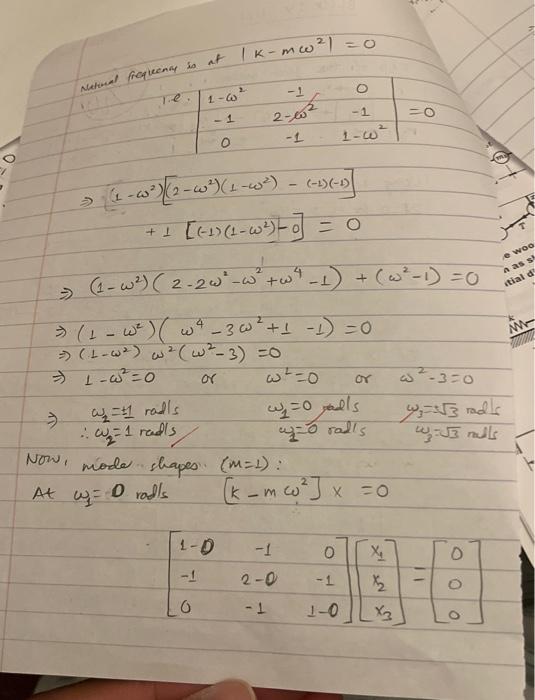 Natural frequency is at |K - mω²| = 0
i.e. | 1-ω² -1 0 |
| -1 2-ω² -1 | = 0
| 0 -1 1-ω² |
⇒ (1-ω²)[(2-ω²)(1-ω²) - (-1)(-1)]
+ 1 [(-1)(1-ω²) - 0] = 0
⇒ (1-ω²)(2-2ω²-ω²+ω⁴-1) + (ω²-1) = 0
⇒ (1-ω²)(ω⁴-3ω²+1-1) = 0
⇒ (1-ω²) ω²(ω²-3) = 0
⇒ 1-ω²=0 or ω²=0 or ω²-3=0
⇒ ω₂=±1 rad/s ω₁=0 rad/s ω₃=±√3 rad/s
∴ ω₂=1 rad/s ω₁=0 rad/s ω₃=√3 rad/s
Now, mode shapes (m=1):
At ω₁= 0 rad/s [K - mω²] x = 0
[ 1-0 -1 0 ] [ x₁ ] [ 0 ]
[ -1 2-0 -1 ] [ x₂ ] = [ 0 ]
[ 0 -1 1-0 ] [ x₃ ] [ 0 ]
m
T
e woo
n as s
itial d
k